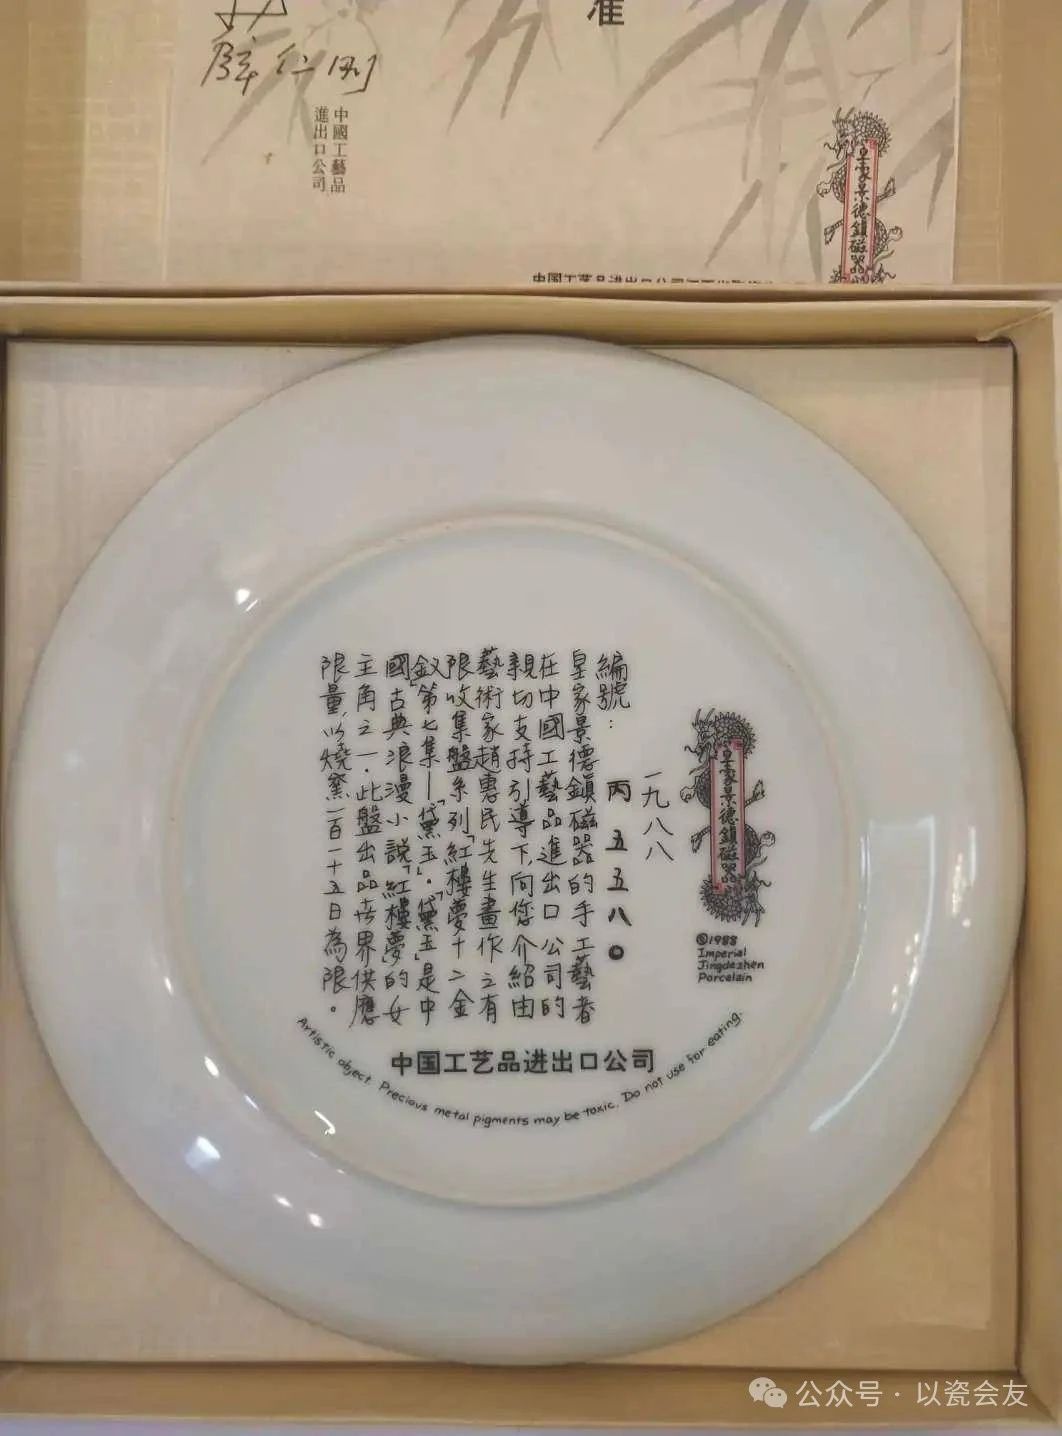 准
中國工藝品
進出口公司
皇家景德鎮磁器
中国工艺品进出口公司
皇家景德鎮磁器
©1988
Imperial
Jingdezhen
Porcelain
一九八八
編號：丙五五八〇
皇家景德鎮磁器的手工藝者
在中國工藝品進出口公司的
親切支持引導下,向您介紹由
藝術家趙惠民先生畫作之有
限收集盤系列「紅樓夢十二金
釵」第七集—「黛玉」.「黛玉」是中
國古典浪漫小說「紅樓夢」的女
主角之一.此盤出品世界供應
限量,以燒窯一百一十五日為限。
中国工艺品进出口公司
Artistic object. Precious metal pigments may be toxic. Do not use for eating.
公众号·以瓷会友